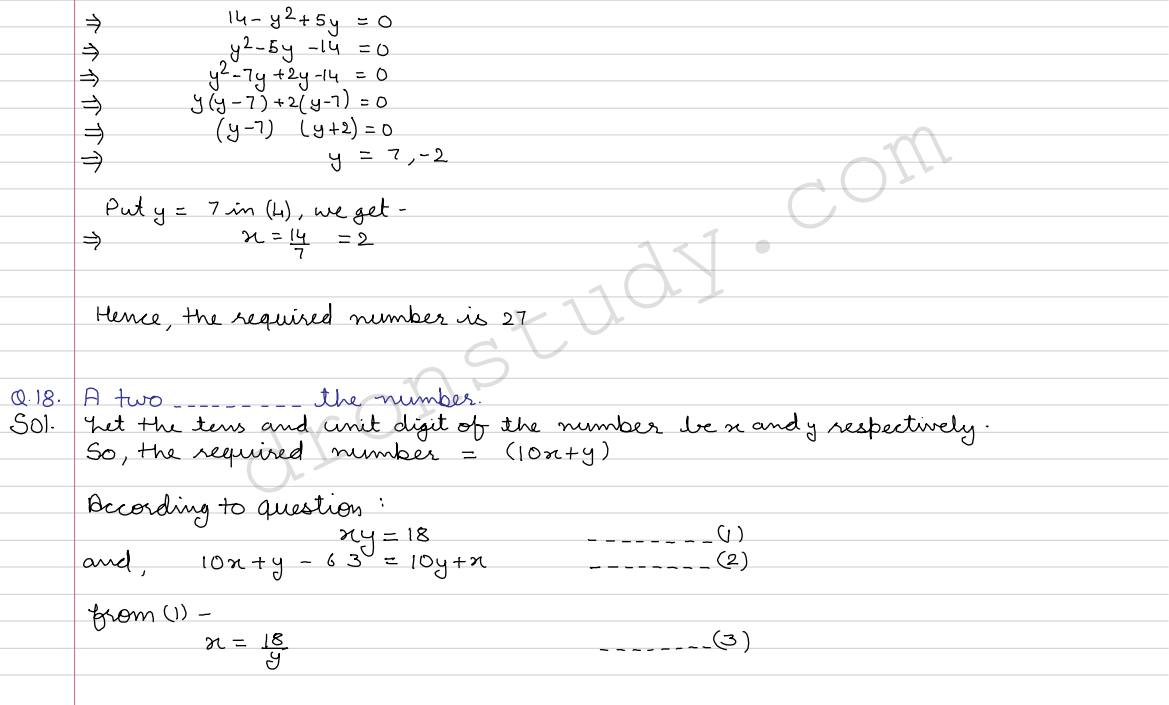 ⇒ 14 - y² + 5y = 0
⇒ y² - 5y - 14 = 0
⇒ y² - 7y + 2y - 14 = 0
⇒ y(y - 7) + 2(y - 7) = 0
⇒ (y - 7) (y + 2) = 0
⇒ y = 7, -2
Put y = 7 in (4), we get -
⇒ x = 14/7 = 2
Hence, the required number is 27
Q.18. A two --------- the number.
Sol. Let the tens and unit digit of the number be x and y respectively.
So, the required number = (10x + y)
According to question :
xy = 18 --------(1)
and, 10x + y - 63 = 10y + x --------(2)
from (1) -
x = 18/y --------(3)
dronstudy.com